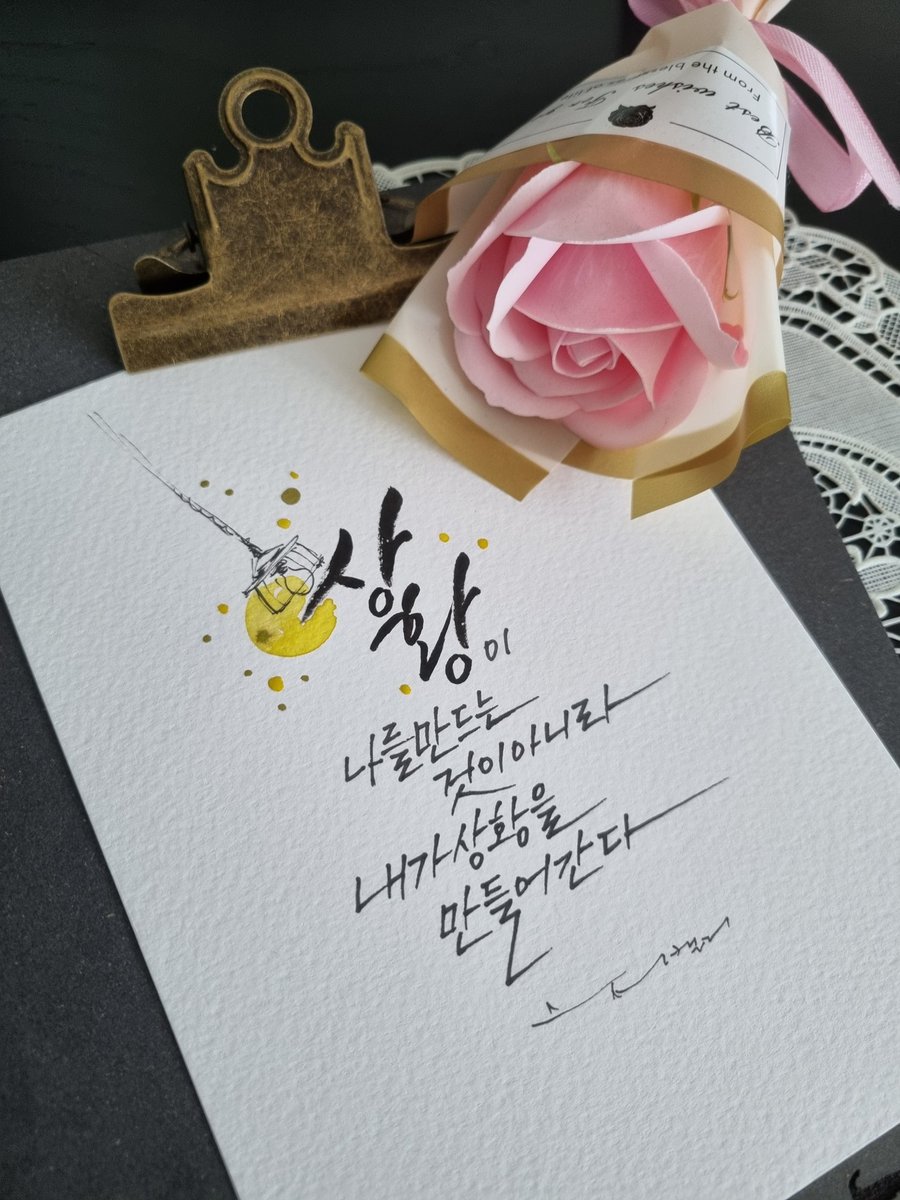 Best wishes For
From the
상황이
나를만드는
것이아니라
내가상황을
만들어간다